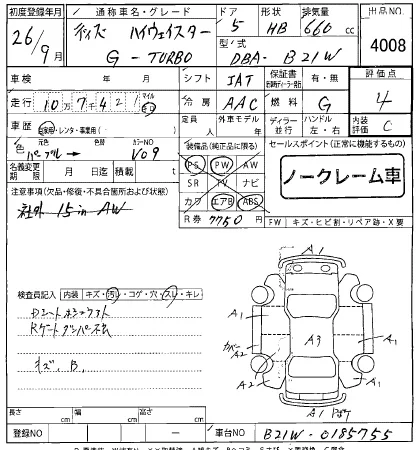 初度登録年月 通称車名・グレード ドア 形状 排気量 出品NO
26年9月 デイズ ハイウェイスター 5 HB 660cc 4008
G-TURBO 型式 DBA-B21W
車検 年 月 シフト IAT 保証書 有・無 評価点
走行 10万7千421 マイル km 冷房 AAC 燃料 G 4
車歴 自家用・レンタ・事業用( ) 定員 人 外車モデル 年 ディーラー・並行 ハンドル 左・右 内装評価 C
色 元色 パープル→ 色替 カラーNO V09 装備品(純正品に限る) セールスポイント(正常に機能するもの)
名義変更期限 月 日 積載 t PS PW AW ノークレーム車
注意事項(欠品・修復・不具合箇所および状態) SR TV ナビ
社外 15in AW カワ エアB ABS
R券 7750円 FW キズ・ヒビ割・リペア跡・X要
検査員記入 内装 キズ・汚レ・コゲ・穴・スレ・キレ
Rゲートダンパー不良
キズ、B、
A1
A1
A2
カバー
A2
A3
A1
A1
A1
長さ cm 幅 cm 高さ cm
登録NO ー 車台NO B21W-0185755